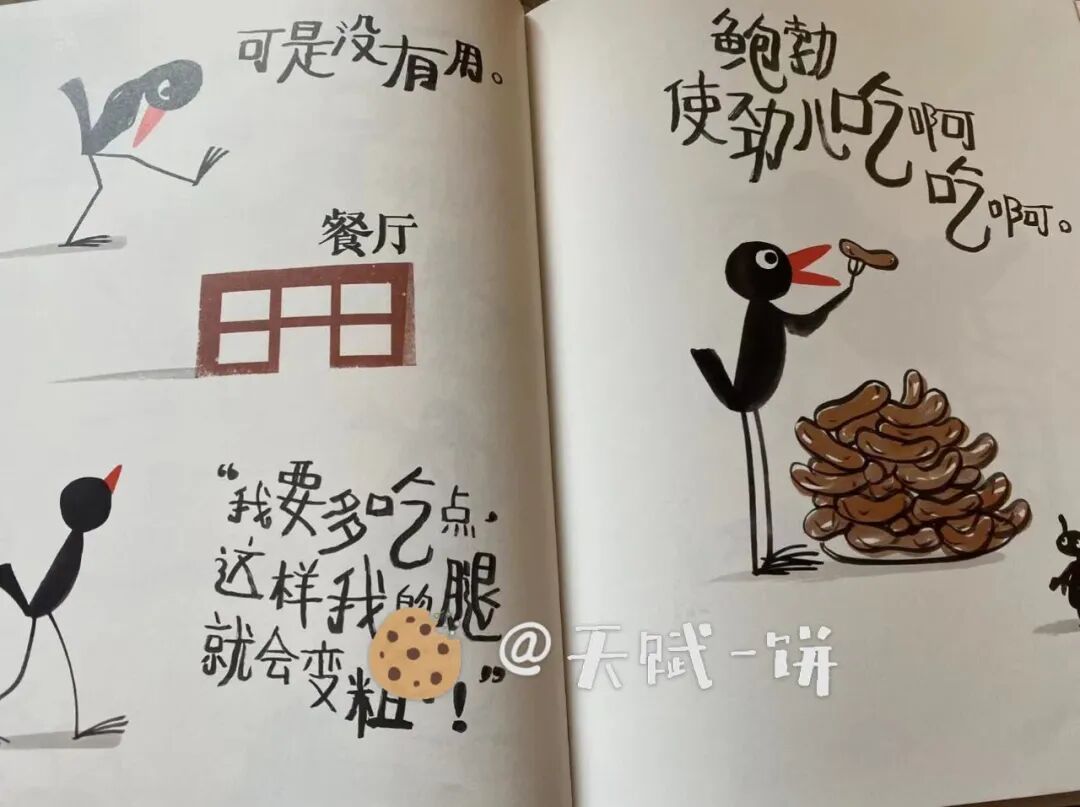 可是没有用。
餐厅
“我要多吃点,
这样我的腿
就会变粗!”
鲍勃
使劲儿吃啊
吃啊。
@天赋一饼